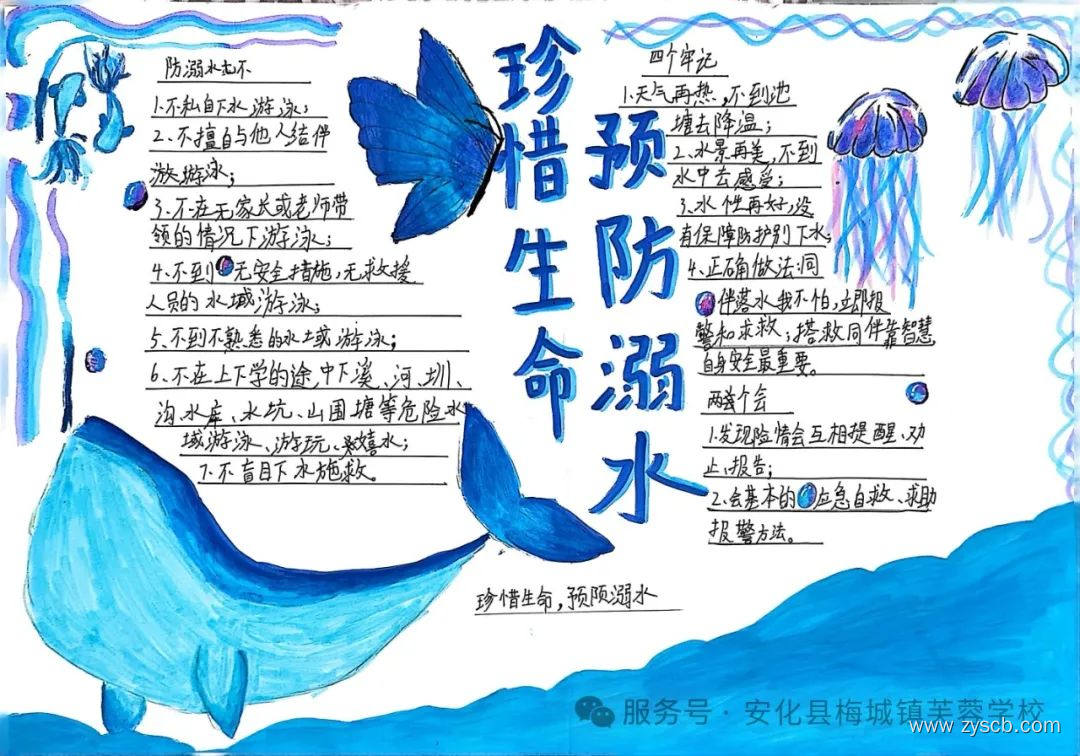 珍惜生命
预防溺水
防溺水七不
1.不私自下水游泳;
2、不擅自与他人结伴
游泳;
3、不在无家长或老师带
领的情况下游泳;
4、不到无安全措施,无救援
人员的水域游泳;
5、不到不熟悉的水域游泳;
6、不在上下学的途中下溪、河、圳、
沟、水库、水坑、山围塘等危险水
域游泳、游玩、嬉水;
7、不盲目下水施救。
四个牢记
1.天气再热,不到池
塘去降温;
2、水景再美,不到
水中去感受;
3、水性再好,没
有保障防护别下水;
4、正确做法:同
伴落水我不怕,立即报
警和求救;搭救同伴靠智慧
自身安全最重要。
两个会
1.发现险情会互相提醒、劝
止、报告;
2、会基本的应急自救、求助
报警方法。
珍惜生命,预防溺水
服务号·安化县梅城镇芙蓉学校
www.zyscb.com